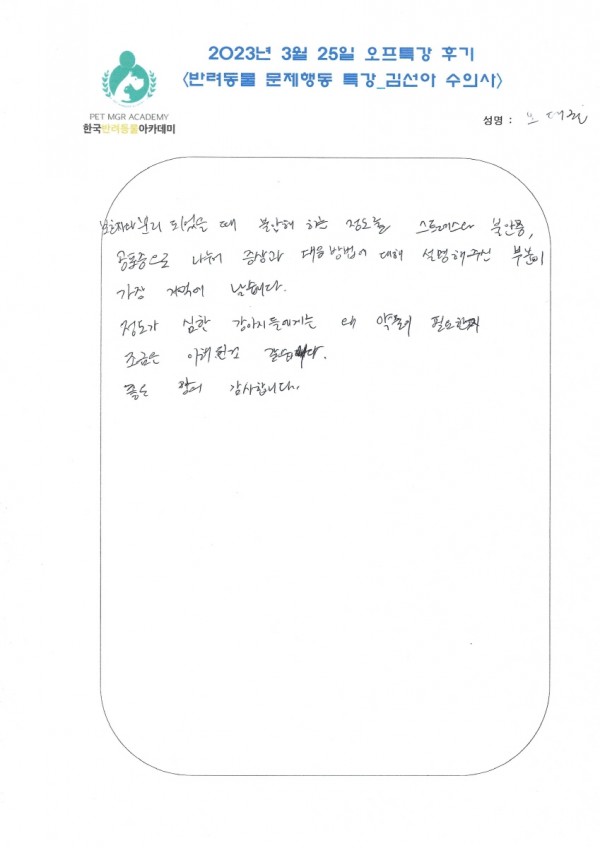 2023년 3월 25일 오프특강 후기
<반려동물 문제행동 특강_김선아 수의사>
PET MGR ACADEMY
한국반려동물아카데미
성명 :
보호자와 분리 되었을 때 불안해 하는 정도를 스트레스와 불안증,
공포증으로 나눠서 증상과 대응방법에 대해 설명해주신 부분이
가장 기억에 남습니다.
정도가 심한 강아지들에게는 왜 약물이 필요한지
조금은 이해된것 같습니다.
좋은 강의 감사합니다.